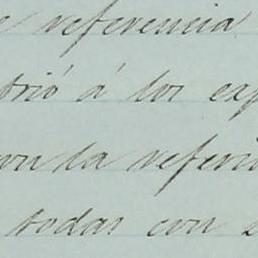 e referencia
trió á los exp
con la referi
todas con e